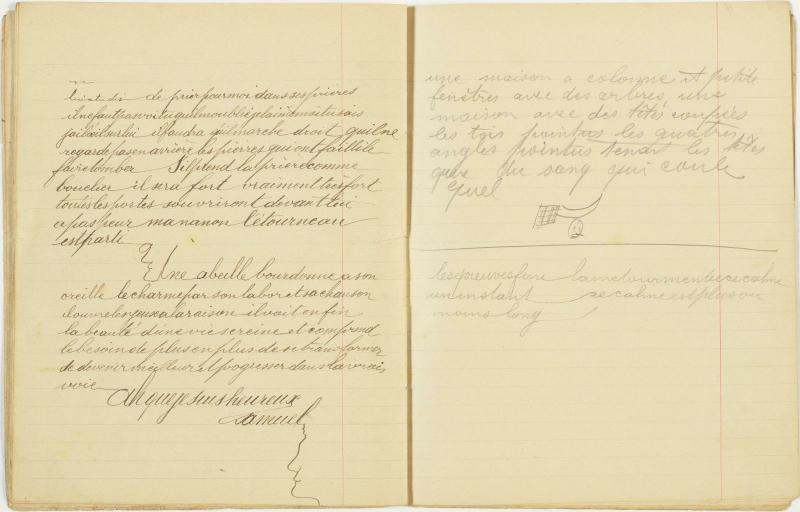 de prier pour moi dans ses prières
il ne faut pas voitu quil moublie plaint moi tu sais
jailoeilsurlui il faudra quil marche droit quilne
regardepasenarrière lespierres qui ont faillile
fairetomber Silprend laprièrecomme
bouclier il sera fort vraiment trèsfort
touteslesportes souvriront devant lui
apaspeur mananon l'étourneau
estparti
Une abeille bourdonne a son
oreille le charmeparsonlaboretsachanson
louvrelesyeuxalaraison il voit enfin
la beauté d'une vie sereine et comprend
lebesoin de plus en plus de se transformer
de devenir meilleur et progresser dans lavraie
voie
Ah quejesuisheureux
Samuel
une maison a colonne et petite
fenêtres avec des arbres une
maison avec des têtes coupées
les toits pointus les quatres
angles pointus tenant les têtes
que du sang qui coule
quel
lesepreuvesfine lametourmenteesecalme
uninstant secalmeestplusou
moinslong